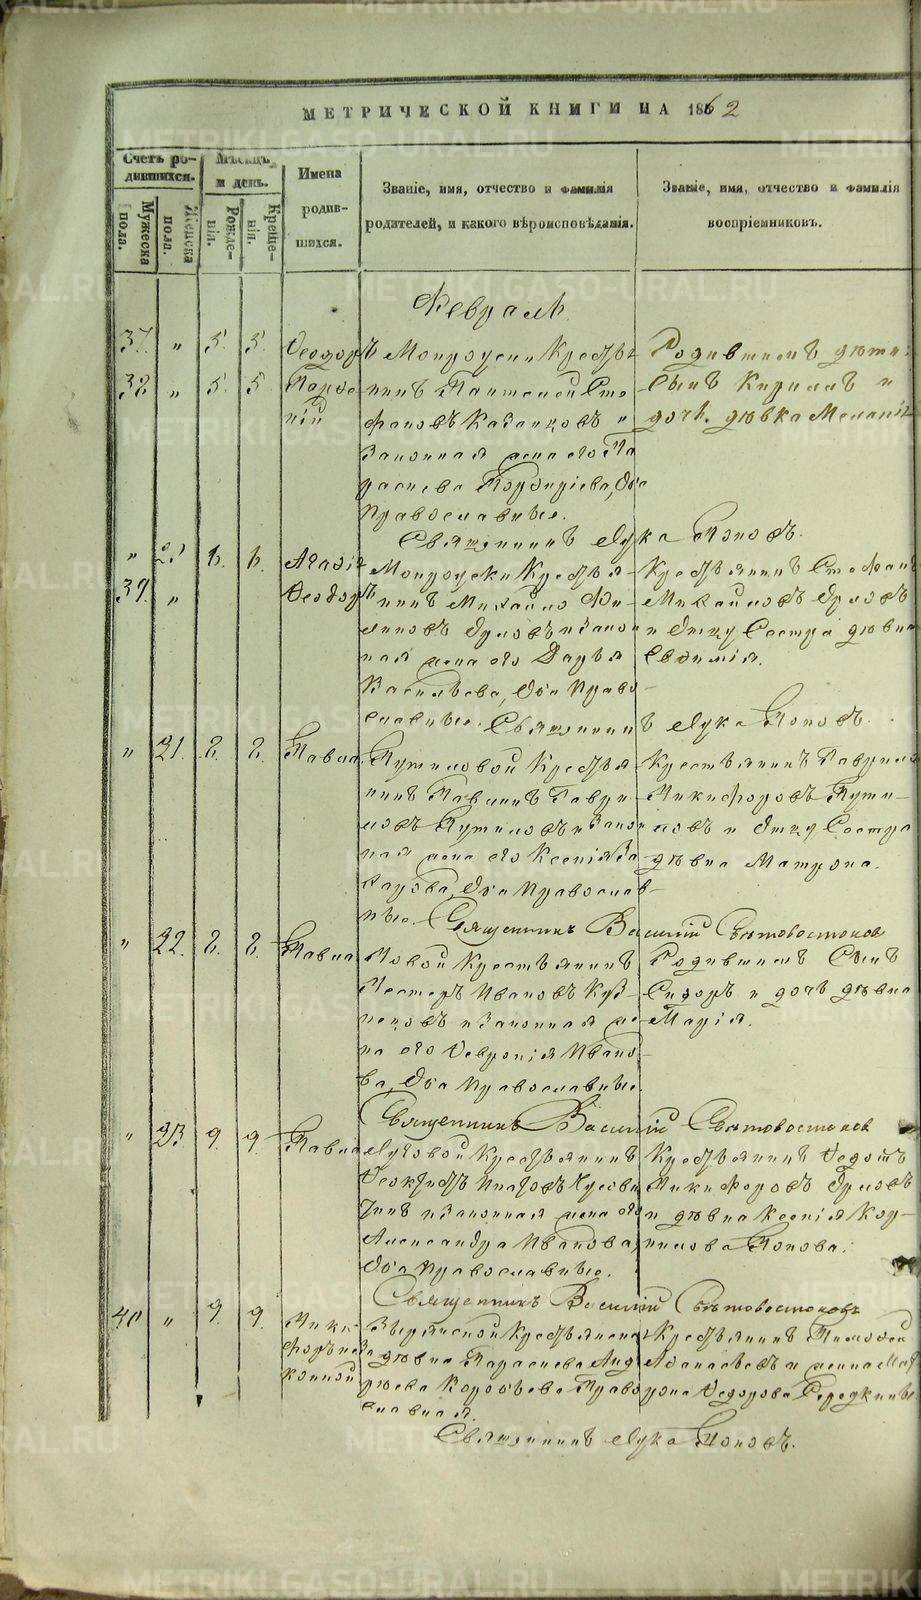 МЕТРИЧЕСКОЙ КНИГИ НА 1862
Счетъ ро-
дившихся.
Мужеска
пола.
Женска
пола.
Мѣсяцъ
и день.
Рожде-
нія.
Креще-
нія.
Имена
родив-
шихся.
Званіе, имя, отчество и фамилія
родителей, и какого вѣроисповѣданія.
Званіе, имя, отчество и фамилія
воспріемниковъ.
Февраль.
37. " 5. 5. Ѳеодоръ
38 " 5. 5. Парѳе
ній
Крестья
нинъ Пантелей Сте
фановъ Казанцовъ и
Законная жена его Па
раскева Порфиріева, Оба
Православные.
Родившихъ дѣти:
Сынъ Кириллъ и
дочь дѣвка Меланія
Священникъ Лука Поповъ.
" 6. 6. Агаѳія
39. " Ѳеодоръ
Крестья-
нинъ Михайло Фи-
липовъ Орловъ и Закон
ная жена его Дарья
Васильева, Оба Право-
славные.
Крестьянинъ Стефанъ
Михайловъ Орловъ
и Отцу Сестра дѣвка
Евфимія.
Священникъ Лука Поповъ.
" 21. 8. 8. Павла
Путиловой Крестья
нинъ Гаври
ловъ Путиловъ и Закон
ная жена его Ксенія За
харова, Оба Православ-
ные.
Крестьянинъ Гаврило
Никифоровъ Пути-
ловъ и Отцу Сестра
дѣвка Матрона.
Священникъ Василій Свѣтовостоковъ
" 22. 8. 8. Павла
Крестьянинъ
Нестеръ Ивановъ Куз-
нецовъ и Законная же-
на его Февронія Ивано-
ва, Оба Православные.
Родившихъ Сынъ
Сидоръ и дочь дѣвка
Марія.
Священникъ Василій Свѣтовостоковъ
" 23 9. 9. Павла
Луговой Крестьянинъ
Ѳеоктистъ
и Законная жена его
Александра Иванова,
Оба Православные.
Крестьянинъ Ѳедотъ
Никифоровъ Орловъ
и дѣвка Ксенія Кор-
нилова Попова.
Священникъ Василій Свѣтовостоковъ
40 " 9. 9. Ники
форъ неза
конной
Крестьянска
дѣвка Параскева Анд
реева Воробьева Право
славная.
Крестьянинъ Тимофей
Афанасьевъ и жена Мат
рона Ѳедорова Середкины
Священникъ Лука Поповъ.